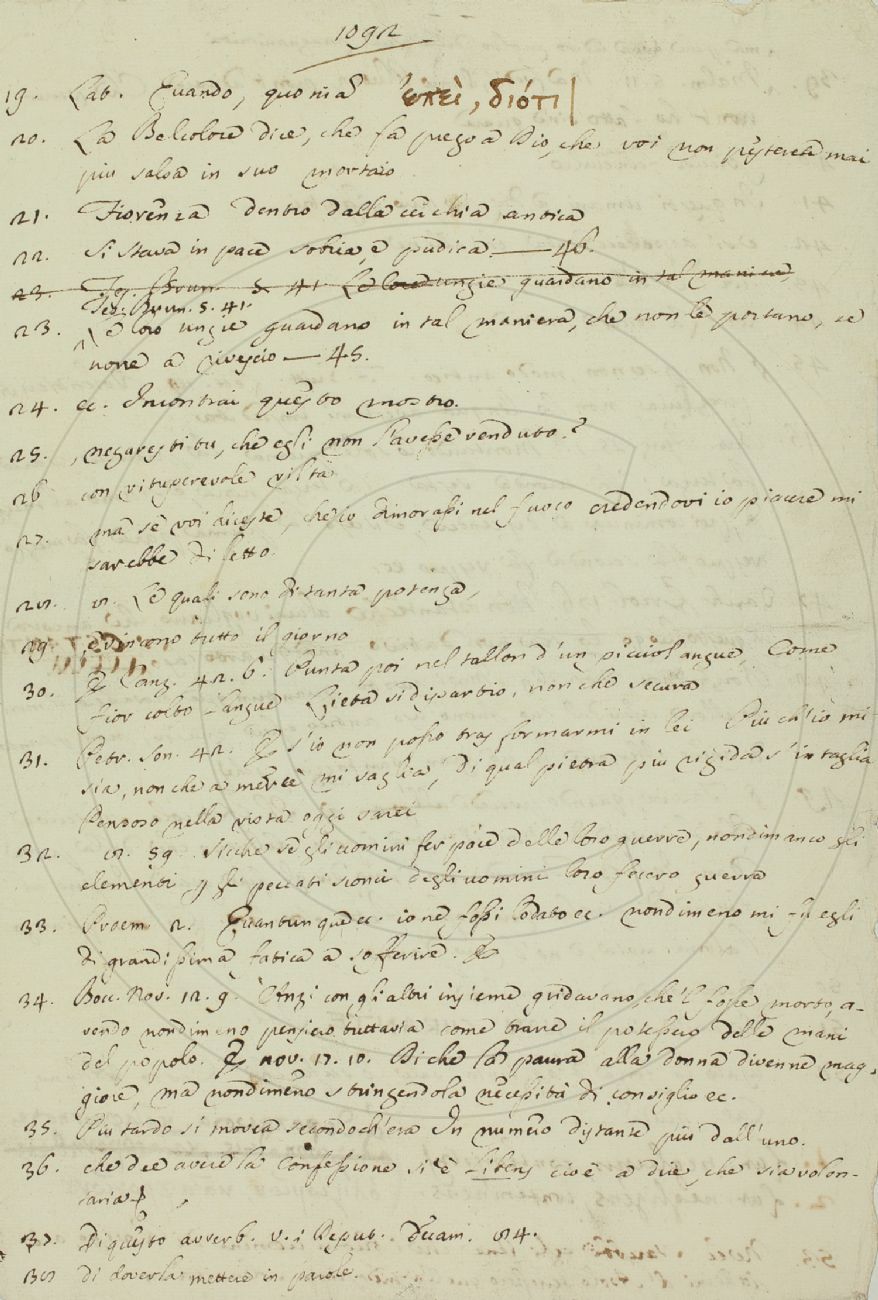 1092
19. Lab. Quando, quoniã ἐπεὶ, διότι
20. La Belcolore dice, che fa prego a Dio, che voi non pesterete mai
più salsa in suo mortaio
21. Fiorenza dentro dalla cerchia antica
22. Si stava in pace sobria, e pudica — 46.
23. Tes. Brun. 5. 41 Le loro ungie guardano in tal maniera,
Tes. Brun. 5. 41.
23. e loro ungie guardano in tal maniera, che non le portano, se
none a rivescio — 45.
24. ec. Incontrai questo mostro.
25. , negaresti tu, che egli non l'avesse venduto?
26 con vituperevole viltà
27. ma se voi diceste, ch'io dimorassi nel fuoco credendovi io piacere mi
sarebbe diletto.
28. 8. Le quali sono di tanta potenza,
29. , e dicono tutto il giorno
30. Canz. 42. 6. Punta poi nel tallon d'un picciol angue, Come
fior colto langue Lieta si dipartio, non che secura
31. Petr. Son. 42. s'io non posso trasformarmi in lei Più ch'io mi
sia, non che a mercè mi vaglia, Di qual pietra più rigida s'intaglia
Pensoso nella vista oggi sarei
32. 8. 59. Sicche se gli uomini fer pace delle loro guerre, nondimanco gli
elementi p gli peccati sconci degli uomini loro fecero guerra
33. Proem. 2. Quantunque ec. io ne fossi lodato ec. nondimeno mi fu egli
di grandissima fatica a sofferire.
34. Bocc. Nov. 12. 9. Anzi con gli altri insieme gridavano, che 'l fosse morto, a-
vendo nondimeno pensiero tuttavia come trarre il potessero delle mani
del popolo. nov. 17. 10. Di che la paura alla donna divenne mag-
giore, ma nondimeno stringendola necessità di consiglio ec.
35. Piu tardo si movea secondoch'era In numero distante più dall'uno.
36. che dee avere la Confessione si è Libens cioè a dire, che sia volon-
taria
37. Di questo avverb. v. i Deput. Decam. 84.
38 di doverla mettere in parole.